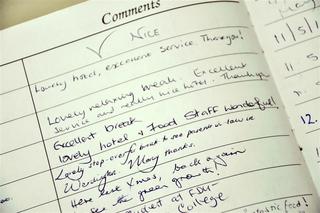 Comments
NICE
Lovely hotel, excellent service. Thankyou!
Lovely relaxing break. Excellent
service and really nice hotel. Thankyou
Excellent break
Lovely hotel & Food Staff wonderful!
Lovely stop-over break to see parents in law in
Warrington. Many thanks.
Here last Xmas, back again
the green growth!
student at
College
11/5/1
11/
12.
food!